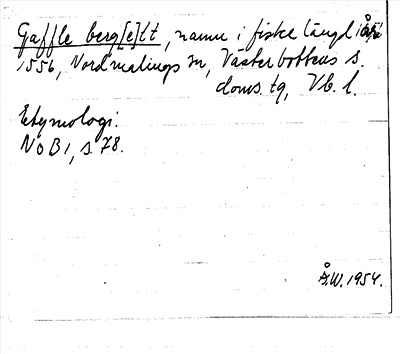 Gaffle berg[e]tt, namn i fiskelängd i år
1556, Nordmalings sn, Västerbottens s.
doms. tg, Vb. l.
Etymologi.
NoB 1, s. 78.
Å.W. 1954.